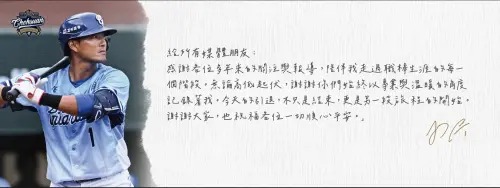 Chehsuan
給所有媒體朋友:
感謝各位多年來的關注與報導,陪伴我走過職棒生涯的每一
個階段,無論高低起伏,謝謝你們始終以專業與溫暖的角度
記錄著我。今天的引退,不只是結束,更是另一段旅程的開始,
謝謝大家,也祝福各位一切順心平安。
1